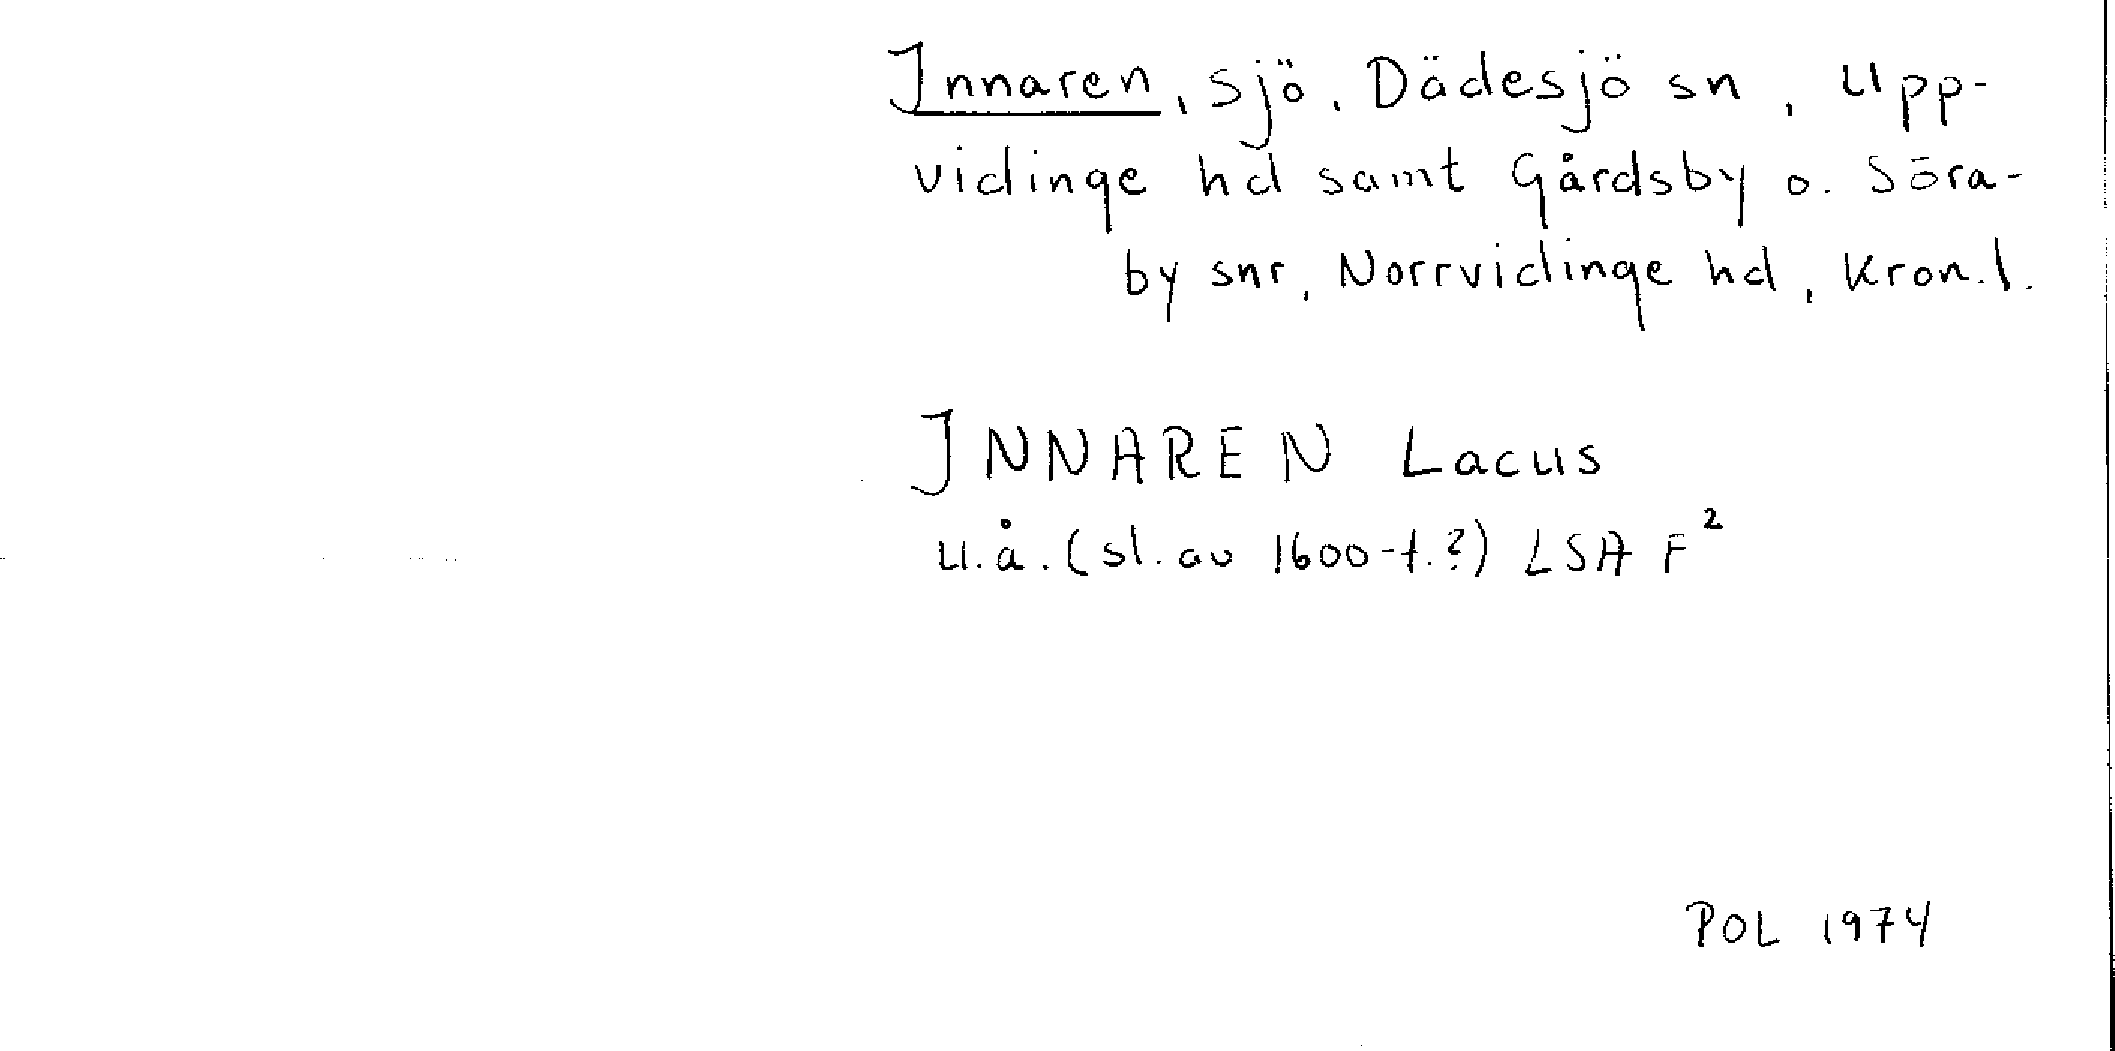 Innaren, sjö, Dädesjö sn, Upp-
vidinge hd samt Gårdsby o. Söra-
by snr, Norrvidinge hd, Kron.l.
INNAREN Lacus
u.å. (sl. av 1600-t.?) LSA F²
POL 1974